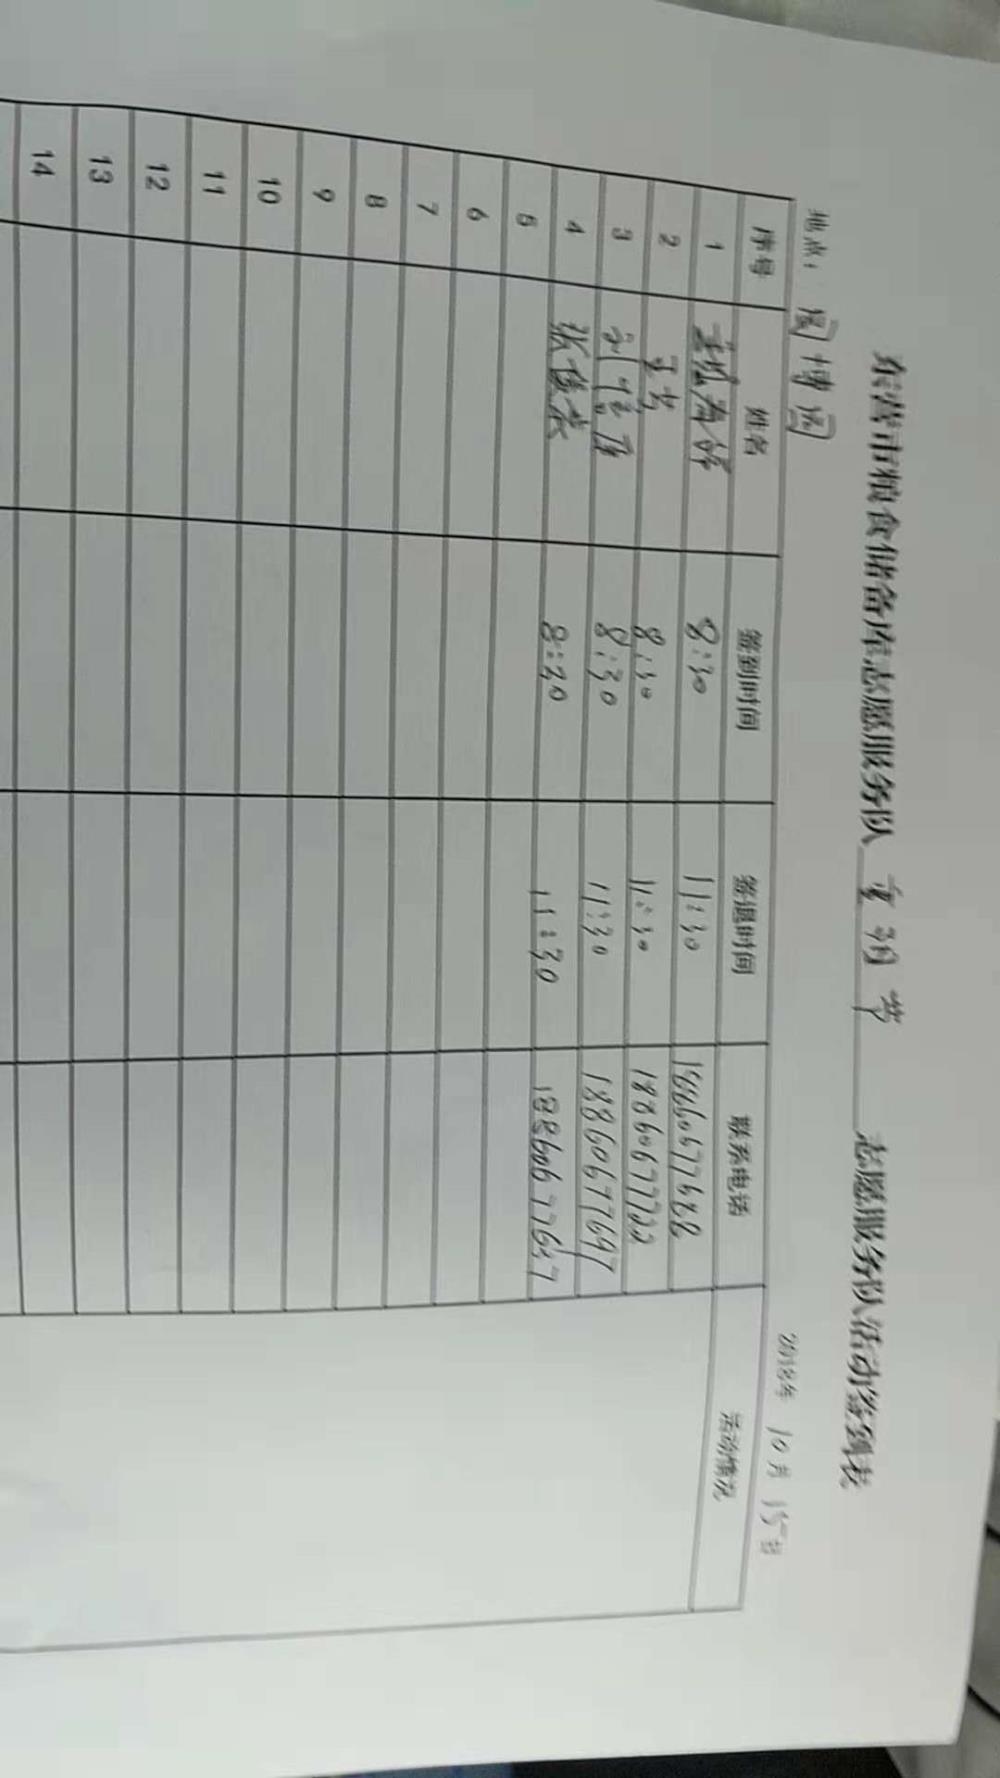 东营市粮食储备库志愿服务队 重阳节 志愿服务队活动签到表
地点: 园博园 2018年 10月 15日
序号 姓名 签到时间 签退时间 联系电话 活动情况
1 8:30 11:30 18660677688
2 8:30 11:30 18860677722
3 8:30 11:30 18860677697
4 8:30 11:30 18860677637
5
6
7
8
9
10
11
12
13
14